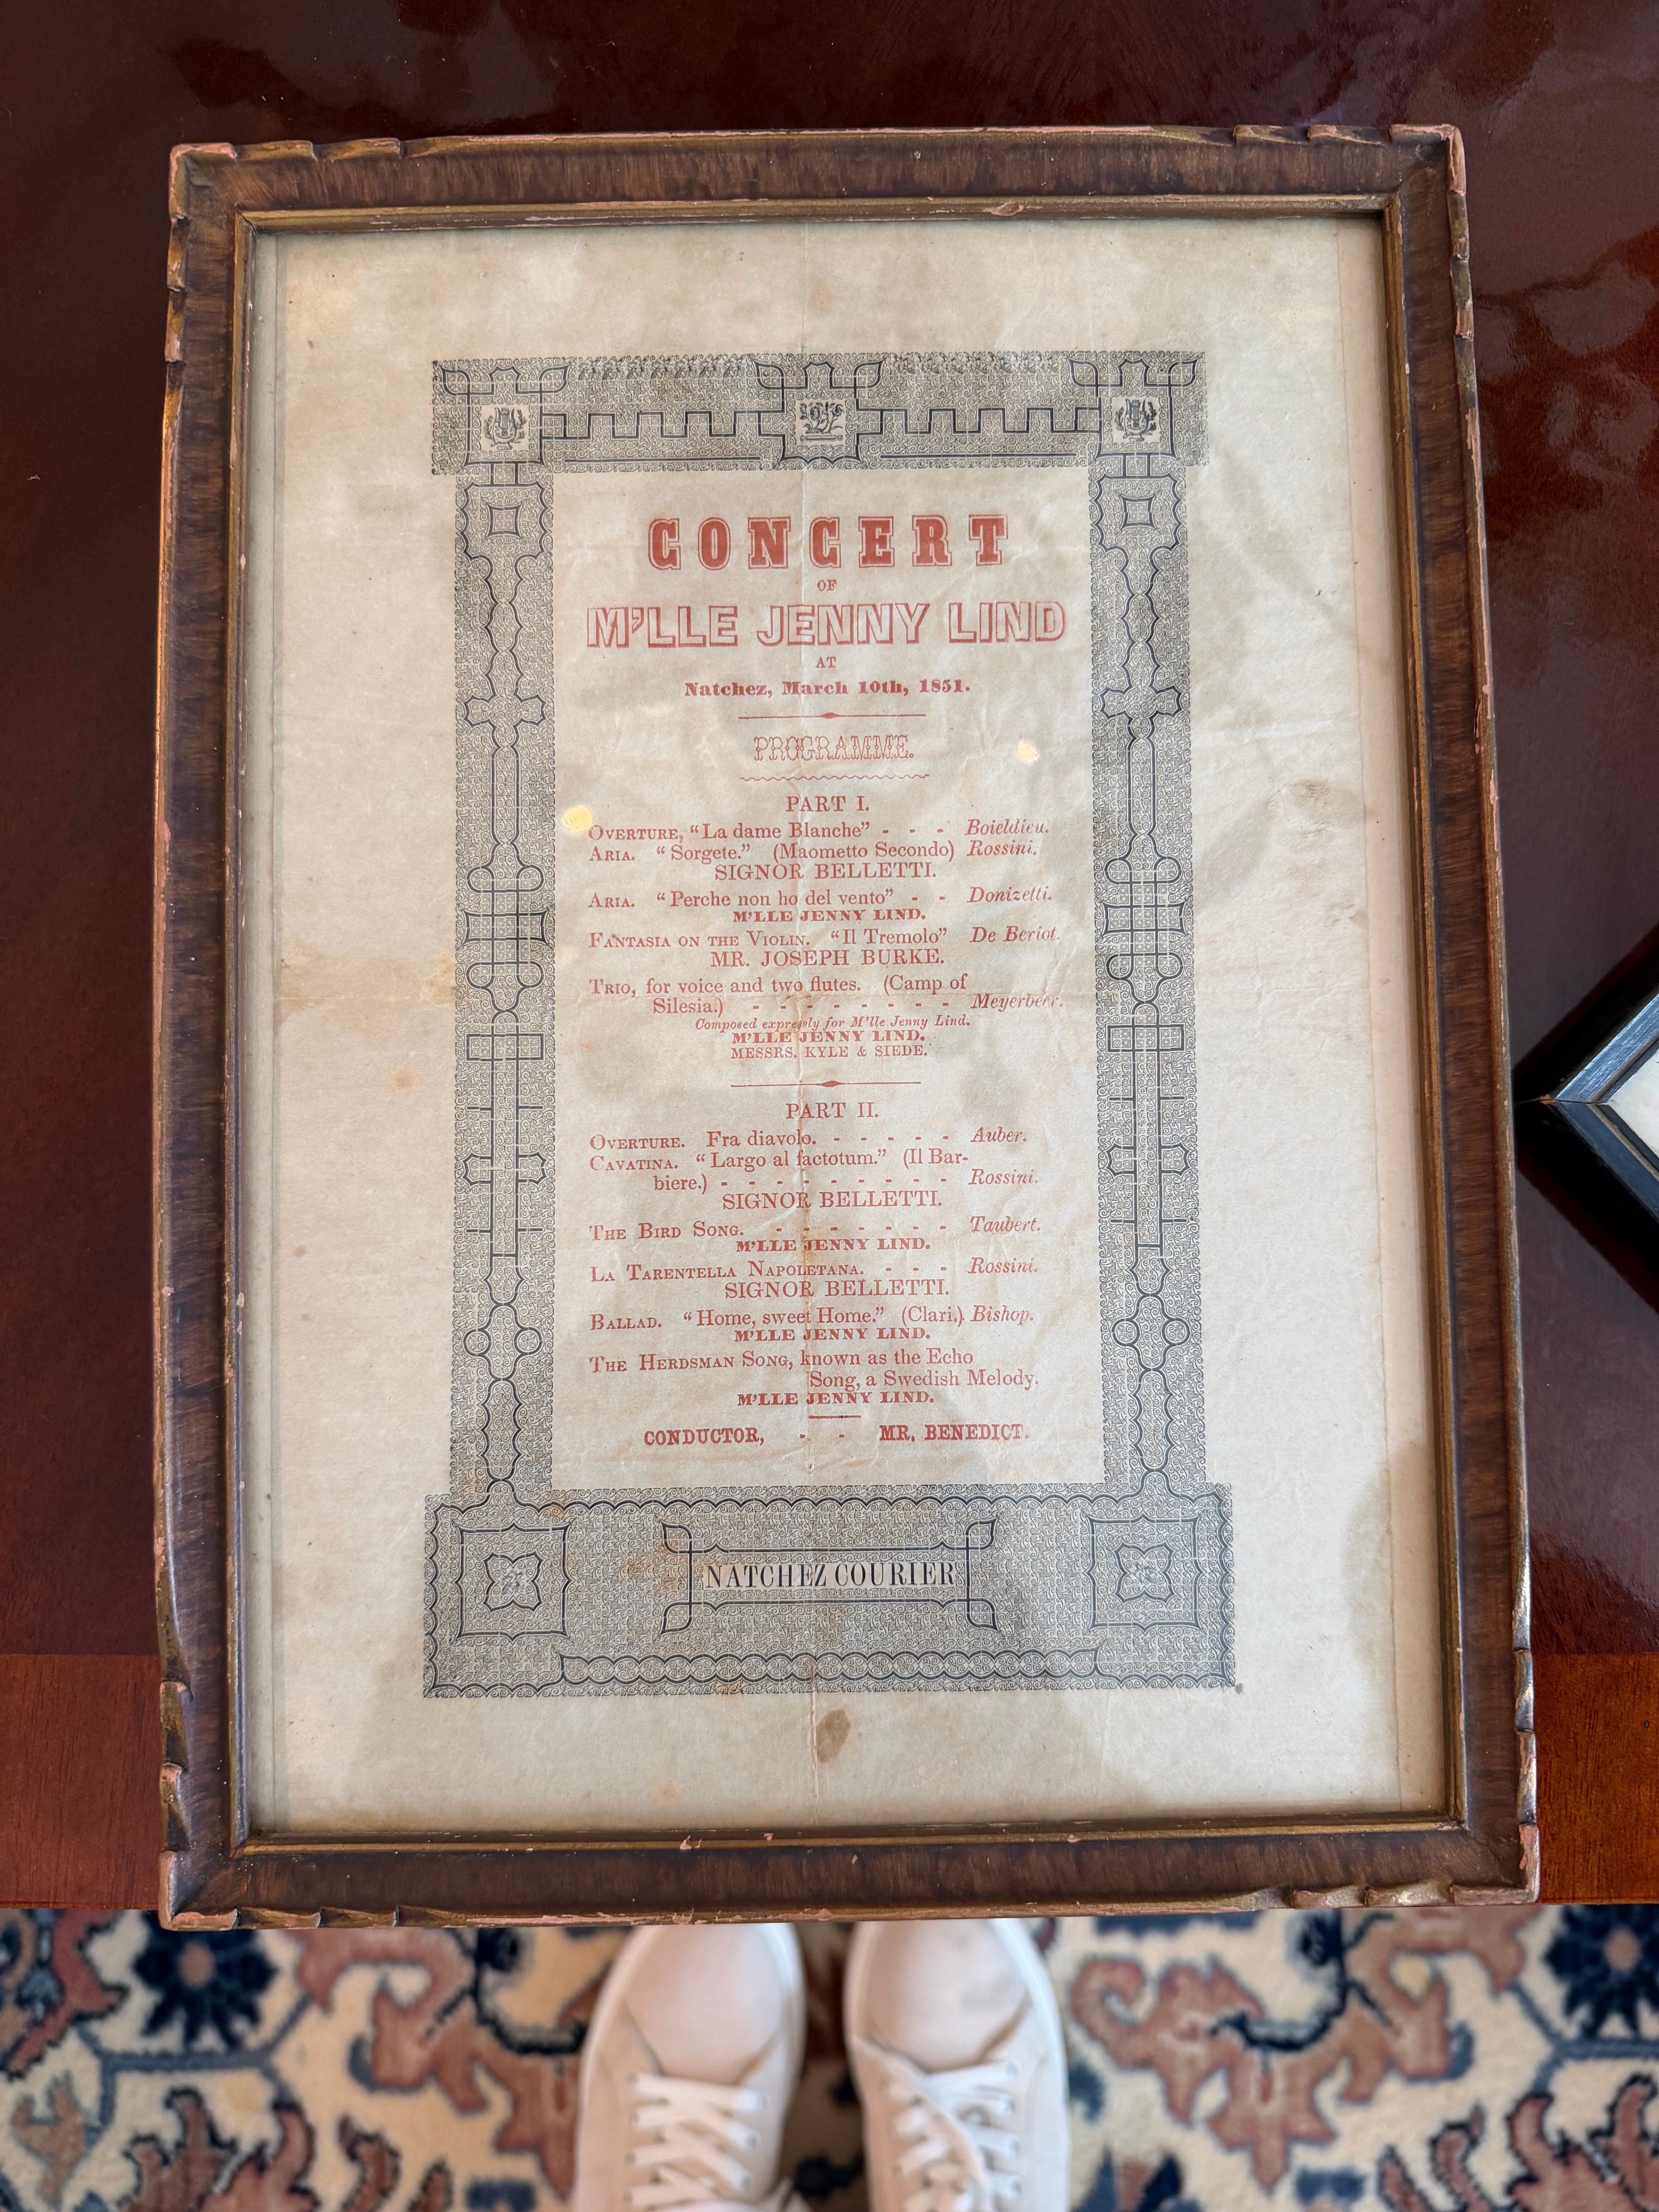 CONCERT
OF
M'LLE JENNY LIND
AT
Natchez, March 10th, 1851.
PROGRAMME.
PART I.
OVERTURE, "La dame Blanche" - - - Boieldieu.
ARIA. "Sorgete." (Maometto Secondo) Rossini.
SIGNOR BELLETTI.
ARIA. "Perche non ho del vento" - - Donizetti.
M'LLE JENNY LIND.
FANTASIA ON THE VIOLIN. "Il Tremolo" De Beriot.
MR. JOSEPH BURKE.
TRIO, for voice and two flutes. (Camp of
Silesia.) - - - - - - - - Meyerbeer.
Composed expressly for M'lle Jenny Lind.
M'LLE JENNY LIND.
MESSRS. KYLE & SIEDE.
PART II.
OVERTURE. Fra diavolo. - - - - - Auber.
CAVATINA. "Largo al factotum." (Il Bar-
biere.) - - - - - - - - - Rossini.
SIGNOR BELLETTI.
THE BIRD SONG. - - - - - - - Taubert.
M'LLE JENNY LIND.
LA TARENTELLA NAPOLETANA. - - - Rossini.
SIGNOR BELLETTI.
BALLAD. "Home, sweet Home." (Clari.) Bishop.
M'LLE JENNY LIND.
THE HERDSMAN SONG, known as the Echo
Song, a Swedish Melody.
M'LLE JENNY LIND.
CONDUCTOR, - - MR. BENEDICT.
NATCHEZ COURIER